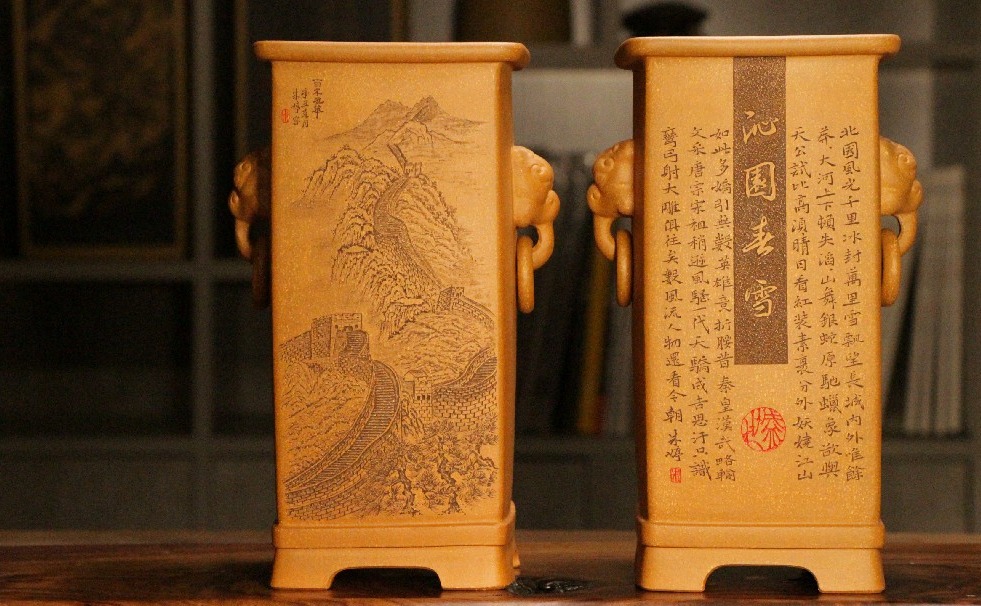 北國風光千里冰封萬里雪飄望長城内外惟餘
莽、大河上下頓失滔、山舞銀蛇原馳蠟象欲與
天公試比高須晴日看紅装素裹分外妖嬈江山
沁園春雪
如此多嬌引無數英雄竟折腰昔秦皇漢武略輸
文采唐宗宋祖稍遜風騷一代天驕成吉思汗只識
彎弓射大雕俱往矣數風流人物還看今朝 朱婷